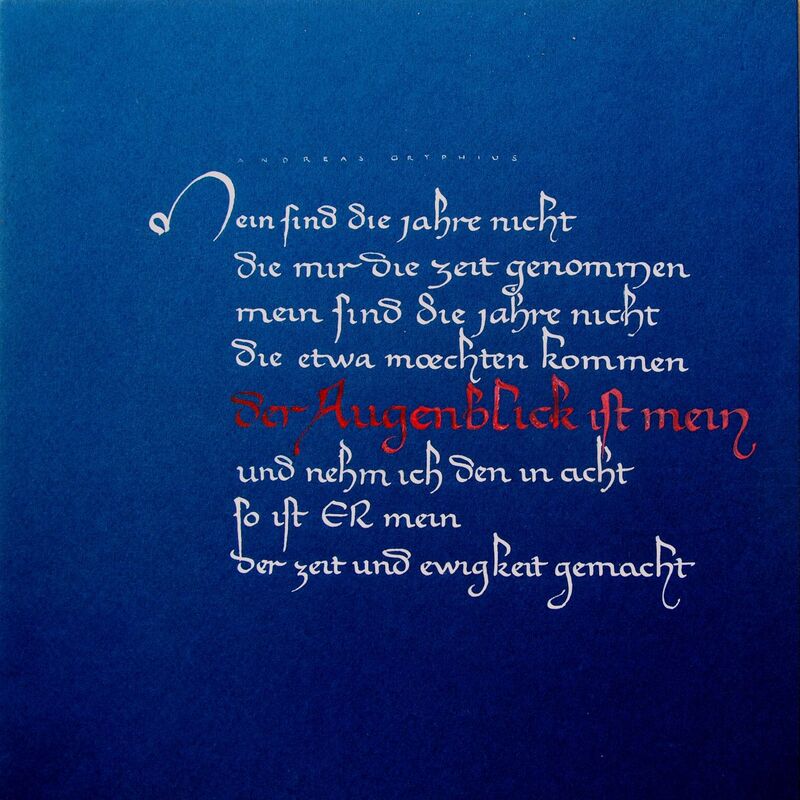 ANDREAS GRYPHIUS
Mein sind die jahre nicht
die mir die zeit genommen
mein sind die jahre nicht
die etwa mœchten kommen
der Augenblick ist mein
und nehm ich den in acht
so ist ER mein
der zeit und ewigkeit gemacht